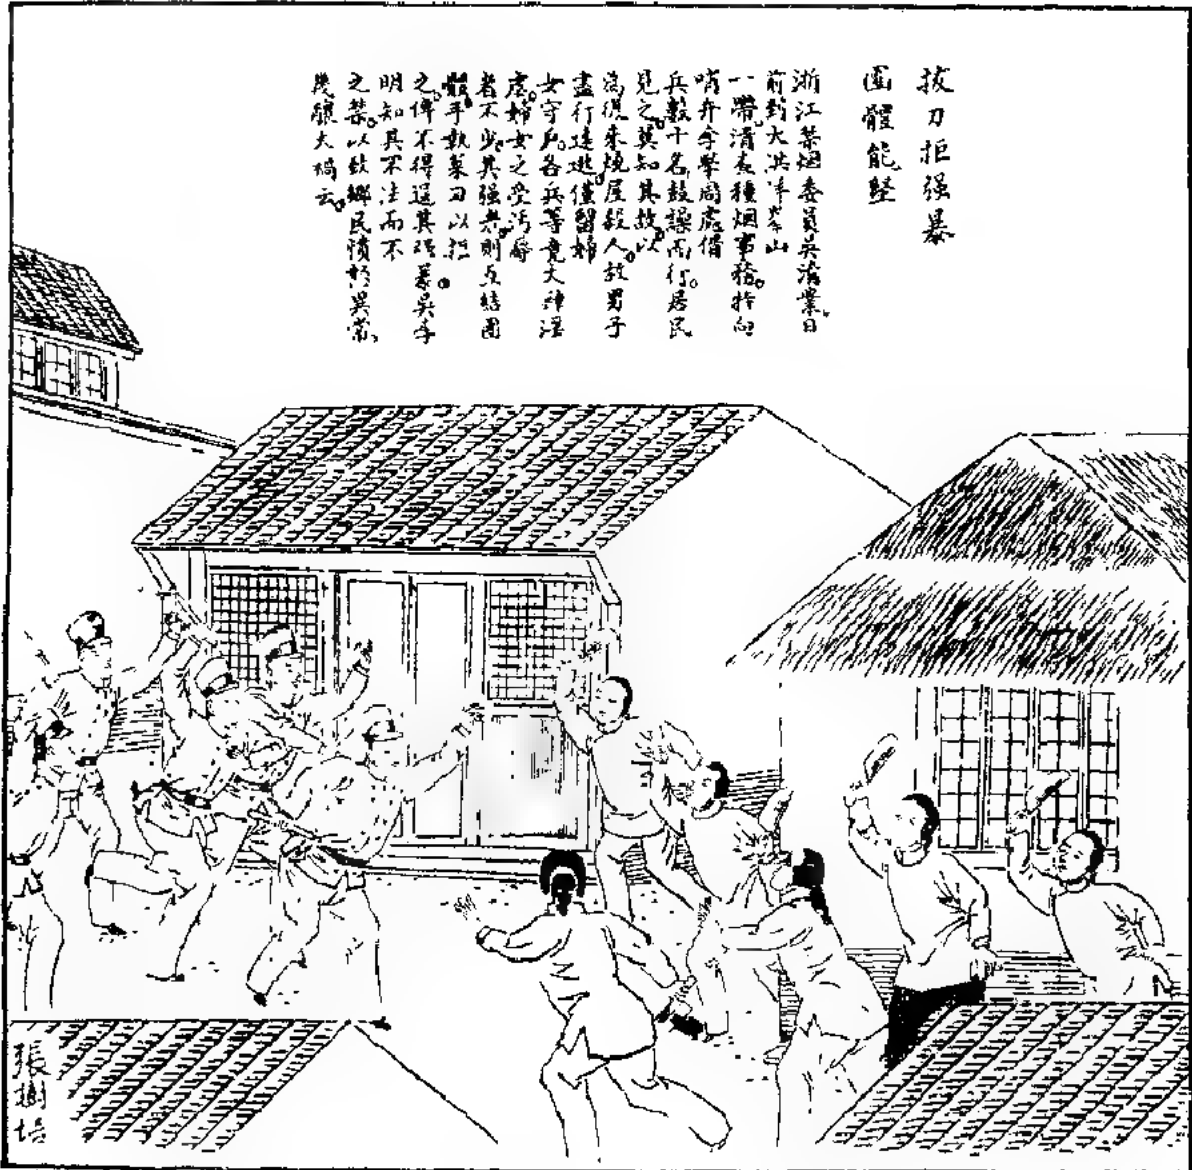 拔刀拒强暴
團體能堅
浙江禁烟委員吳濟業日
前到大洪山
一帶清查種烟事務
哨弁李舉周處借
兵數十名鼓譟而行居民
見之莫知其故以
為復來燒屋殺人故男子
盡行逃避僅留婦
女守戶各兵等竟大肆淫
虐婦女之受污辱
者不少其强悍者則互結團
體手執菜刀以拒
之俾不得逞其强暴吳李
明知其不法而不
之禁以致鄉民憤於異常
幾釀大禍云
張樹培